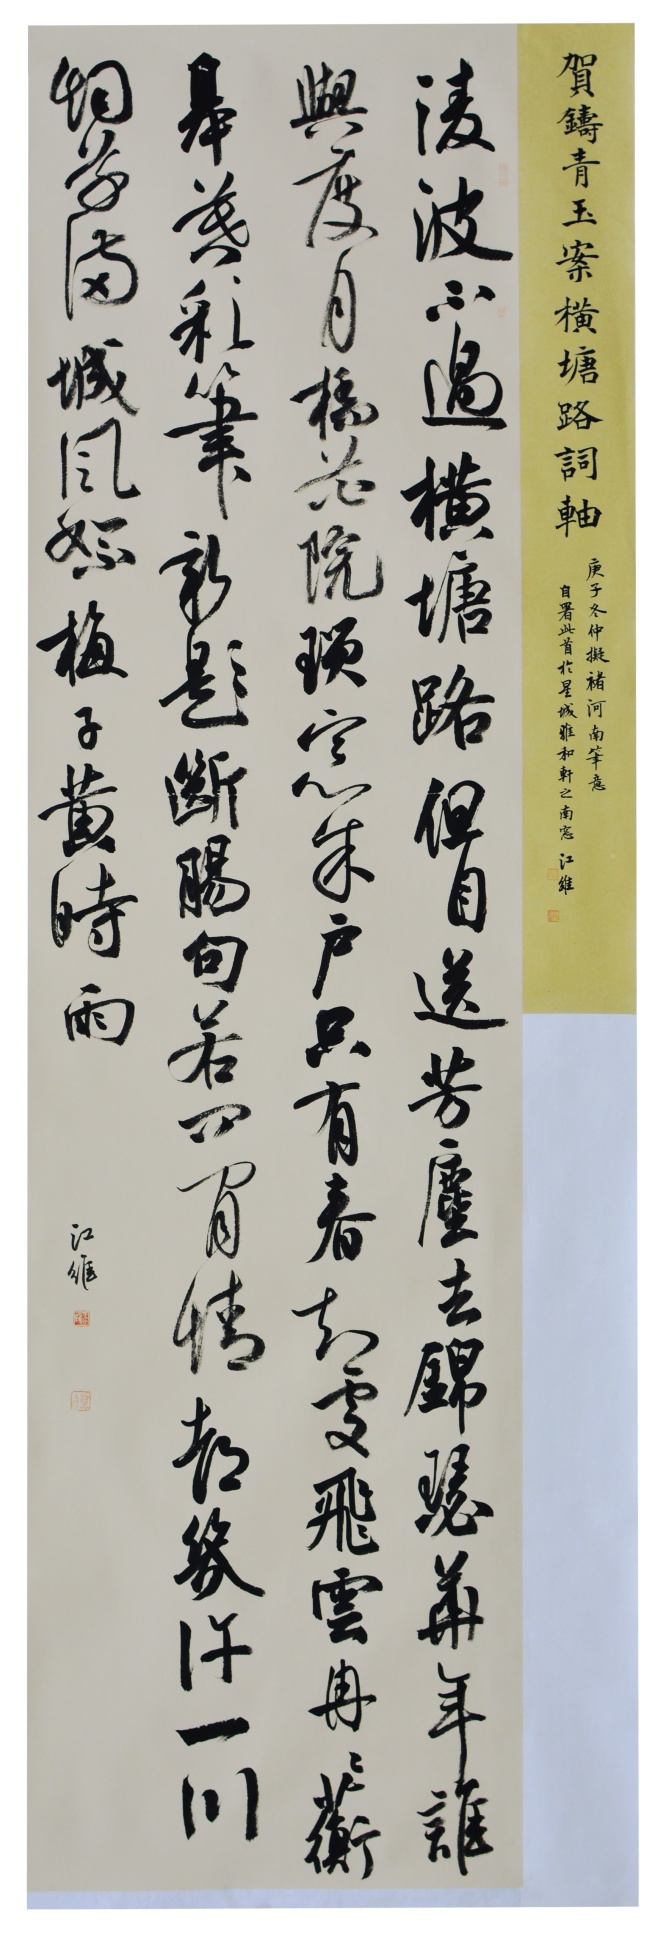 賀鑄青玉案橫塘路詞軸
庚子冬仲擬褚河南筆意
自署此首於星城雅和軒之南窓 江維
淩波不過橫塘路但目送芳塵去錦瑟華年誰
與度月橋花院瑣窓朱戶只有春知處飛雲冉〻蘅
皋暮彩筆新題斷腸句若問閒情都幾許一川
烟草滿城風絮梅子黃時雨
江維